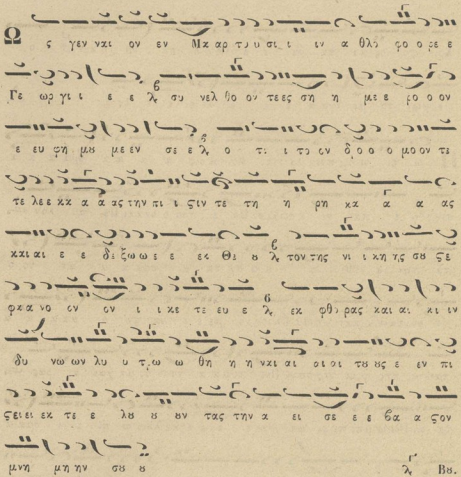 Ω ς γεν ναι ον εν Μα αρ τυ υ σι ι ιν α θλο φο ο ρε ε
Γε ωρ γι ι ε ε λ συ νελ θο ον τε ες ση η με ε ρο ο ον
ε ευ φη μȣ με εν σε ε λ ο τι ι το ον δρο ο ο μο ον τε
τε λε ε κα α ας την πι ι ςιν τε τη η η ρη κα α α ας
και αι ε ε δε ξω ω ε ε εκ Θε ȣ λ τον της νι ι κη ης σȣ ςε
φα νο ον ον ι ι κε τε ευ ε λ εκ φθο ρας και αι κι ιν
δυ νω ων λυ υ τρω ω θη η η ναι αι οι οι τȣ ȣς ε εν πι
ςει ει εκ τε ε λȣ ȣ ȣν τας την α ει σε ε ε βα α ςον
μνη μη ην σȣ ȣ λ Βȣ.